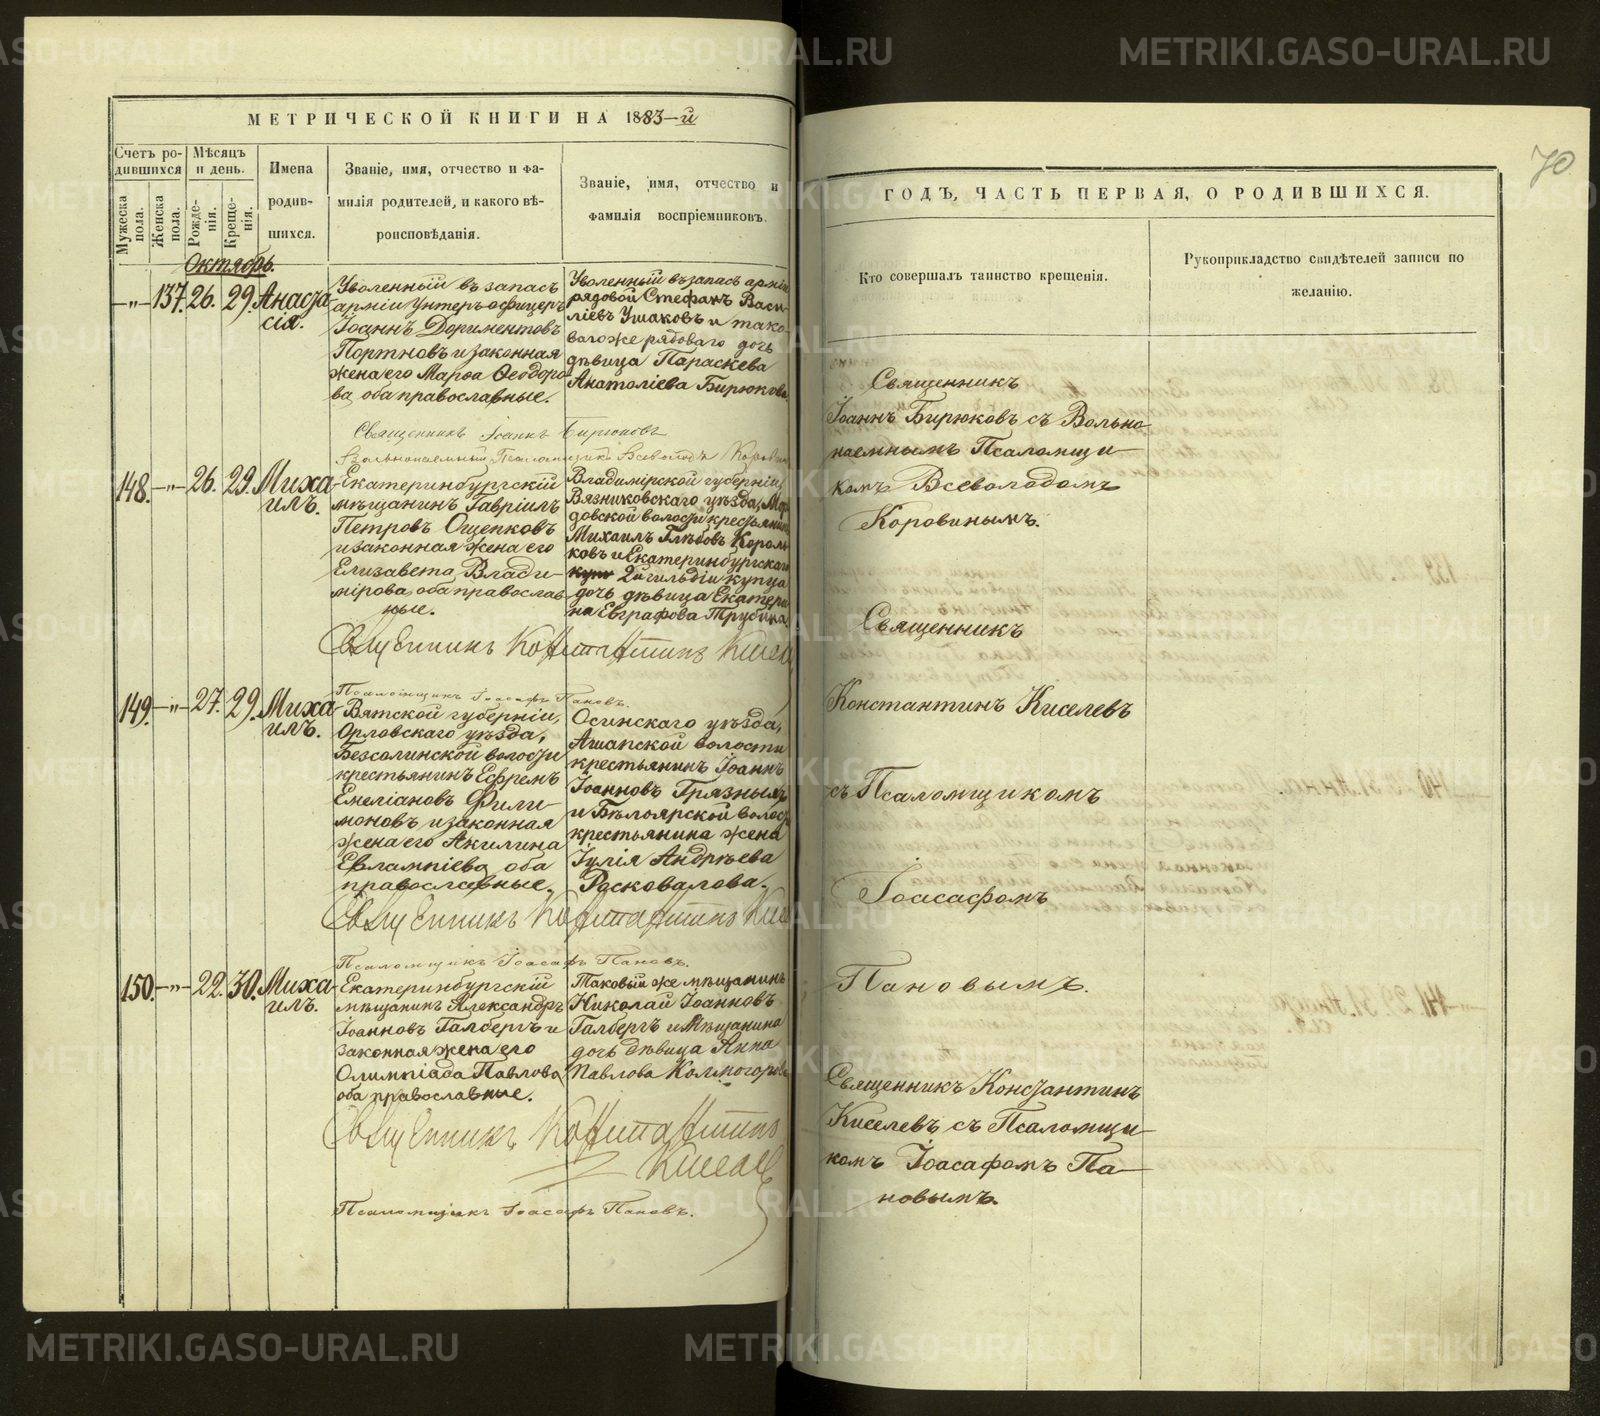 МЕТРИЧЕСКОЙ КНИГИ НА 1883-й
Счетъ ро-
дившихся
Мужеска пола.
Женска пола.
Мѣсяцъ
и день.
Рожде-
нія.
Креще-
нія.
Имена
родив-
шихся.
Званіе, имя, отчество и фа-
милія родителей, и какого вѣ-
роисповѣданія.
Званіе, имя, отчество и
фамилія воспріемниковъ.
Октябрь.
-"- 137. 26. 29. Анаста
сія.
Уволенный въ запасъ
арміи Унтеръ-офицеръ
Іоаннъ Дориментовъ
Портновъ и законная
жена его Марѳа Ѳеодоро-
ва, оба православные.
Уволенный въ запасъ арміи
рядовой Стефанъ Васи-
ліевъ Ушаковъ и тако-
вагоже рядоваго дочь
дѣвица Параскева
Анатоліева Бирюкова.
Священникъ Іоаннъ Бирюковъ
Вольнонаемный Псаломщикъ Всеволодъ Коровинъ
148. -"- 26. 29. Миха
илъ.
Екатеринбургскій
мѣщанинъ Гавріилъ
Петровъ Ощепковъ
и законная жена его
Елизавета Влади-
мірова, оба православ-
ные.
Владимірской губерніи,
Вязниковскаго уѣзда,
довской волости крестьянинъ
Михаилъ Глѣбовъ Король
ковъ и Екатеринбургскаго
2й гильдіи купца
дочь дѣвица Екатери
на Евграфова Трубина.
Священникъ Константинъ Кисел
Псаломщикъ Іоасафъ Пановъ.
149. -"- 27. 29. Миха
илъ.
Вятской губерніи,
Орловскаго уѣзда,
Безсолинской волости
крестьянинъ Ефремъ
Емеліановъ Фили-
моновъ и законная
жена его Акилина
Евлампіева, оба
православные.
Осинскаго уѣзда,
Ашапской волости
крестьянинъ Іоаннъ
Іоанновъ Грязныхъ
и Бѣлоярской волос
крестьянина жена
Іулія Андрѣева
Расковалова.
Священникъ Константинъ Кисе
Псаломщикъ Іоасафъ Пановъ.
150. -"- 22. 30. Миха
илъ.
Екатеринбургскій
мѣщанинъ Александръ
Іоанновъ Галбергъ и
законная жена его
Олимпіада Павлова,
оба православные.
Таковый же мѣщанинъ
Николай Іоанновъ
Галбергъ и Мѣщанина
дочь дѣвица Анна
Павлова Колмогорова
Священникъ Константинъ
Киселев
Псаломщикъ Іоасафъ Пановъ.
70
ГОДЪ, ЧАСТЬ ПЕРВАЯ, О РОДИВШИХСЯ.
Кто совершалъ таинство крещенія.
Рукоприкладство свидѣтелей записи по
желанію.
Священникъ
Іоаннъ Бирюковъ съ Вольно
наемнымъ Псаломщи-
комъ Всеволодомъ
Коровинымъ.
Священникъ
Константинъ Киселевъ
съ Псаломщикомъ
Іоасафомъ
Пановымъ.
Священникъ Константинъ
Киселевъ съ Псаломщи-
комъ Іоасафомъ Па-
новымъ.
METRIKI.GASO-URAL.RU